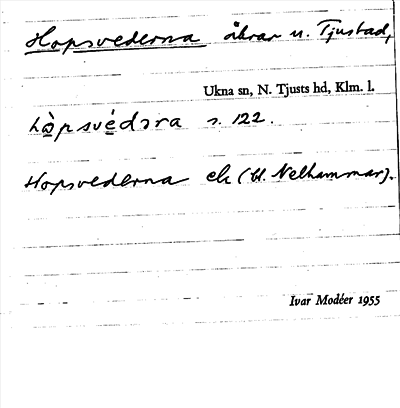 Hopsvederna åkrar u. Tjustad,
Ukna sn, N. Tjusts hd, Klm. l.
hòpsvédɜra s. 122.
Hopsvederna ek (bl. Nelhammar).
Ivar Modéer 1955